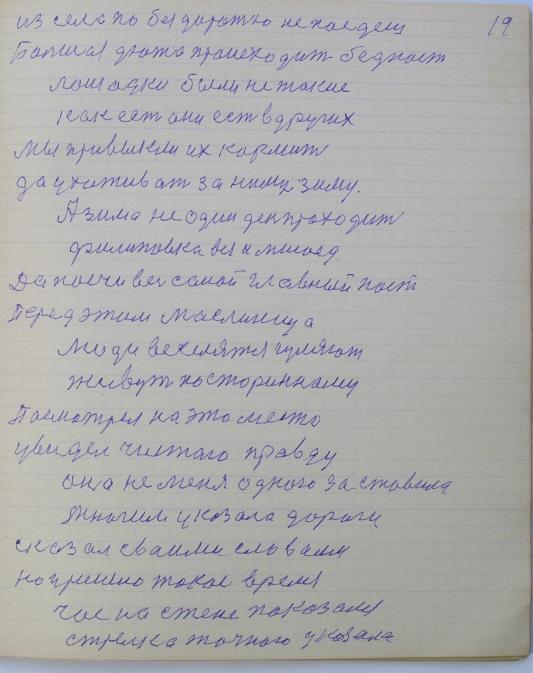 19
из села по бездорожю не поедеш
Болшая дяота происходит бедност
лошадки были не такие
как еёт они ест в других
Мы привыкли их кормит
да ухаживат за ними зиму.
А зима не один ден проходит
филиповка вся мясоед
Да почи вес самой главный пост
Перед этим маслиница
люди веселятся гуляют
живут посторинному
Посмотрел на это место
увидел чистаго правду
она не меня одного заставила
Многим указала дороги
сказал сваими словами
но пришло такое время
час на стене показали
стрелка точного указала